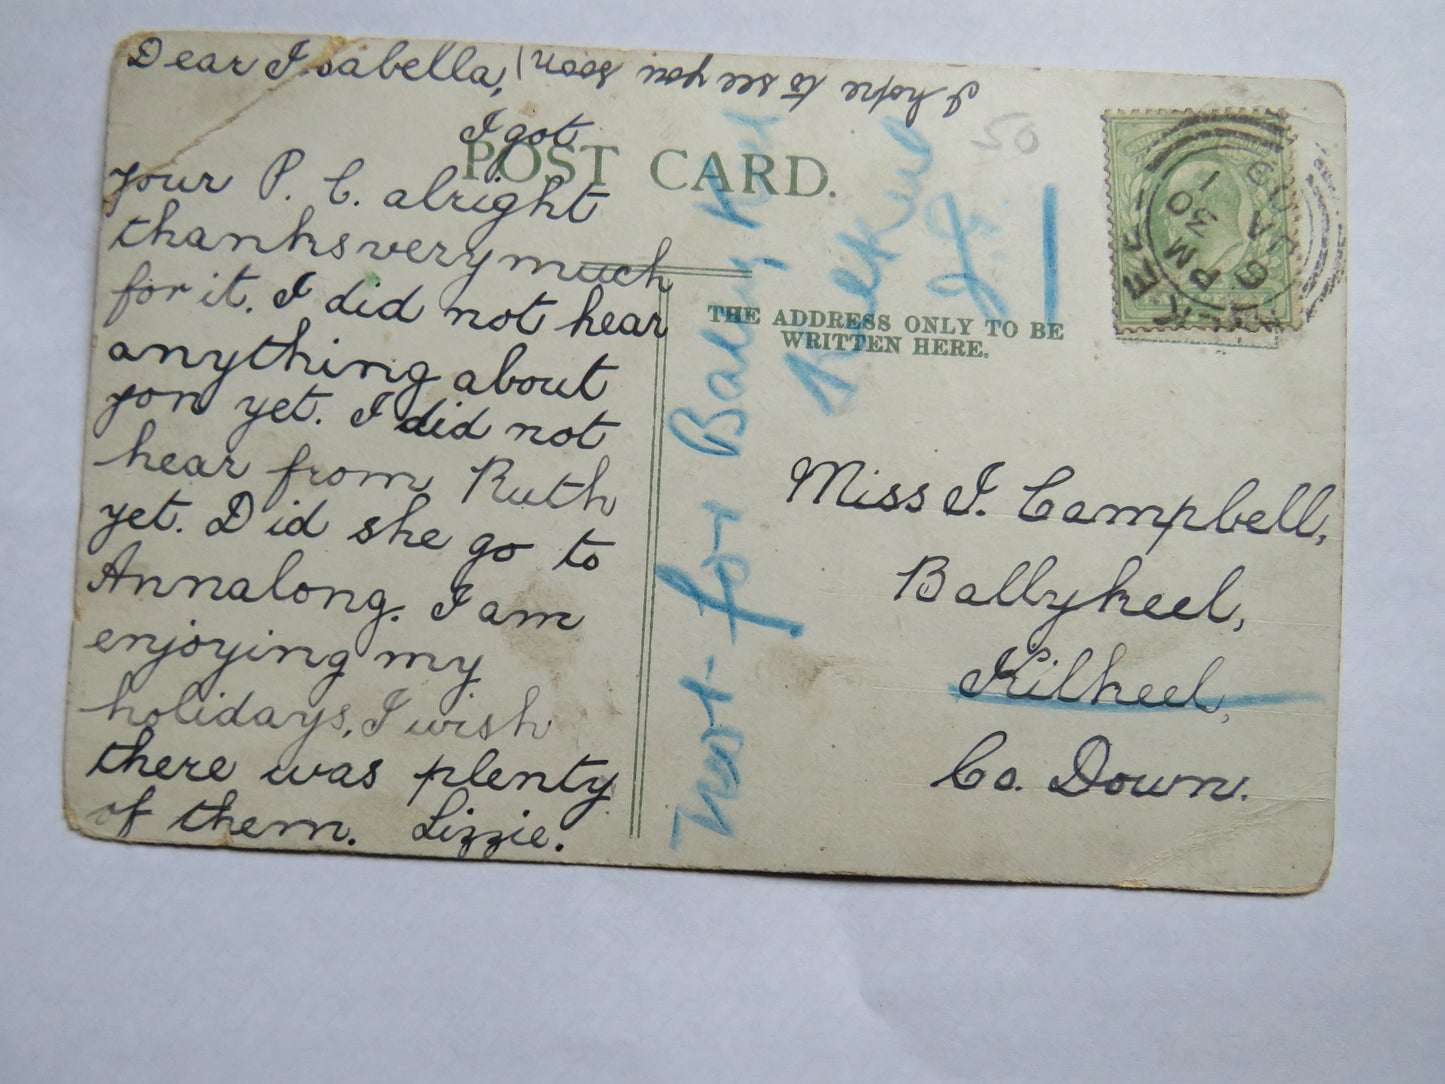 Dear Isabella,
I got
your P. C. alright
thanks very much
for it. I did not hear
anything about
you yet. I did not
hear from Ruth
yet. Did she go to
Annalong. I am
enjoying my
holidays, I wish
there was plenty
of them. Lizzie.
I hope to see you soon
POST CARD.
50
THE ADDRESS ONLY TO BE
WRITTEN HERE.
Not for Ballykeel
Kilkeel
Miss I. Campbell,
Ballykeel,
Kilkeel,
Co. Down.
1 30 PM
JA 10